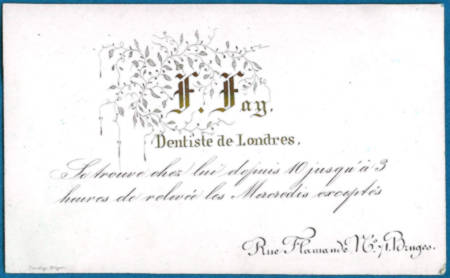 F. Fay.
Dentiste de Londres,
Se trouve chez lui depuis 10 jusqu'à 3
heures de relevée les Mercredis exceptés
Rue Flamande No. 71. Bruges.